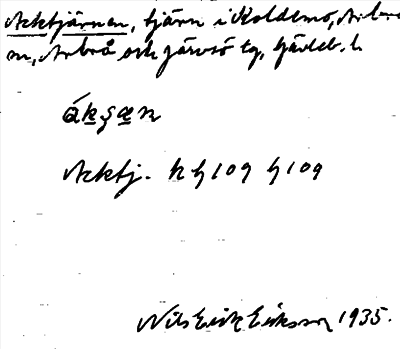 Acktjärnen, tjärn i Koldemo, Arbrå
sn, Arbrå och Järvsö tg, Gävleb. l.
áks̨æn
Acktj. h G 109 G 109
Nils Erik Eriksson 1935.